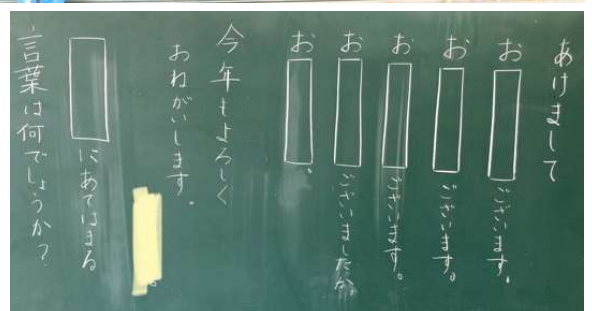 あけまして
お ございます。
お ございます。
お ございます。
お ございましたか。
お 。
今年もよろしく
おねがいします。
。
にあてはまる
言葉は何でしょうか?